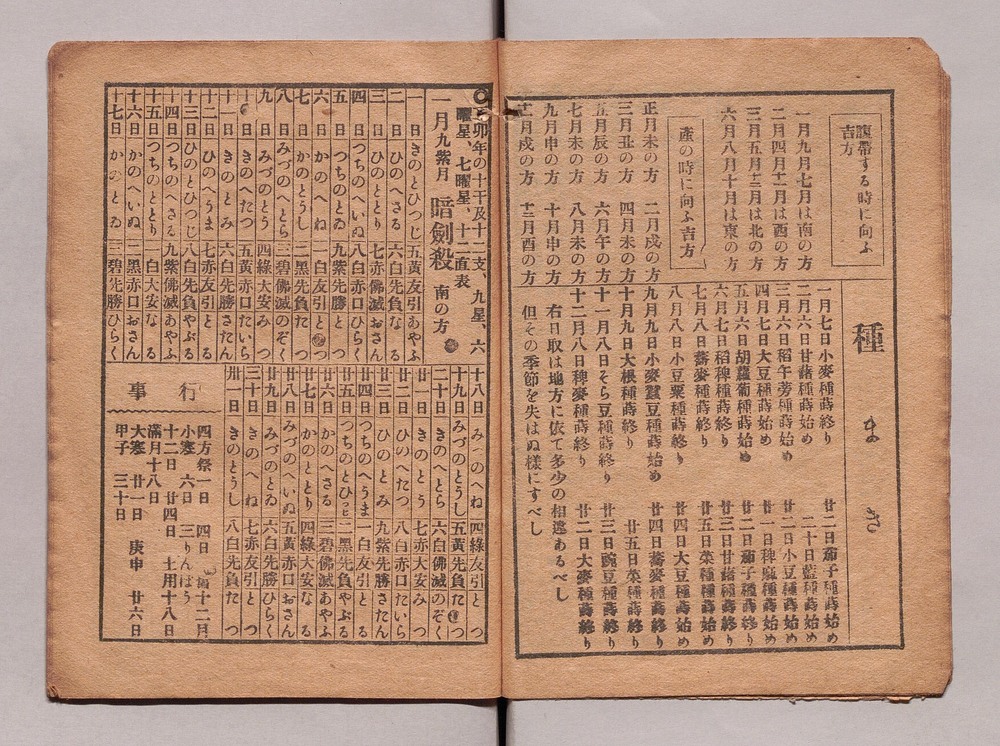 腹帶する時に向ふ
吉方
一月九月七月は南の方
二月四月十一月は酉の方
三月五月十二月は北の方
六月八月十月は東の方
產の時に向ふ吉方
正月未の方 二月戌の方
三月丑の方 四月未の方
五月辰の方 六月午の方
七月未の方 八月未の方
九月申の方 十月申の方
十一月戌の方 十二月酉の方
種まき
一月七日小麥種蒔終り
二月六日甘藷種蒔始め
三月六日稻午蒡種蒔始め
四月七日大豆種蒔始め
五月六日胡蘿蔔種蒔始め
六月七日稻稗種蒔終り
七月八日蕎麥種蒔終り
八月八日小豆粟種蒔終り
九月九日小麥蠶豆種蒔始め
十月九日大根種蒔終り
十一月八日そら豆種蒔終り
十二月八日稗麥種蒔終り
廿二日茄子種蒔始め
二十日藍種蒔始め
廿二日小豆種蒔始め
廿一日稗麻種蒔始め
廿二日茄子種蒔終り
廿三日甘藷種蒔終り
廿五日菜種種蒔始め
廿四日大豆種蒔始め
廿四日蕎麥種蒔終り
廿五日菜種蒔終り
廿三日豌豆種蒔終り
廿二日大麥種蒔終り
右日取は地方に依て多少の相違あるべし
但その季節を失はぬ樣にすべし
卯年の十干及十二支、九星、六
曜星、七曜星、十二直表
一月九紫月 暗劍殺 南の方
一日きのとひつじ五黃友引あやふ
二日ひのへさる六白先負なる
三日ひのととり七赤佛滅おさん
四日つちのへいぬ八白赤口ひらく
五日つちのとゐ九紫先勝とつ
六日かのへね一白友引とつ
七日かのとうし二黑先負たつ
八日みづのへとら三碧佛滅のぞく
九日みづのとう四綠大安みつ
十日きのへたつ五黃赤口たいら
十一日きのとみ六白先勝さたん
十二日ひのへうま七赤友引とる
十三日ひのとひつじ八白先負やぶる
十四日つちのへさる九紫佛滅あやふ
十五日つちのととり一白大安なる
十六日かのへいぬ二黑赤口おさん
十七日かのとゐ三碧先勝ひらく
十八日みづのへね四綠友引とつ
十九日みづのとうし五黃先負たつ
二十日きのへとら六白佛滅のぞく
廿一日きのとう七赤大安みつ
廿二日ひのへたつ八白赤口たいら
廿三日ひのとみ九紫先勝さたん
廿四日つちのへうま一白友引とる
廿五日つちのとひつじ二黑先負やぶる
廿六日かのへさる三碧佛滅あやふ
廿七日かのととり四綠大安なる
廿八日みづのへいぬ五黃赤口おさん
廿九日みづのとゐ六白先勝ひらく
三十日きのへね七赤友引とつ
卅一日きのとうし八白先負たつ
行事
四方祭一日 四日 十二月
小寒六日 三りんぼう
十二日 廿四日 土用十八日
滿月十八日
大寒廿一日 庚申 廿六日
甲子 三十日